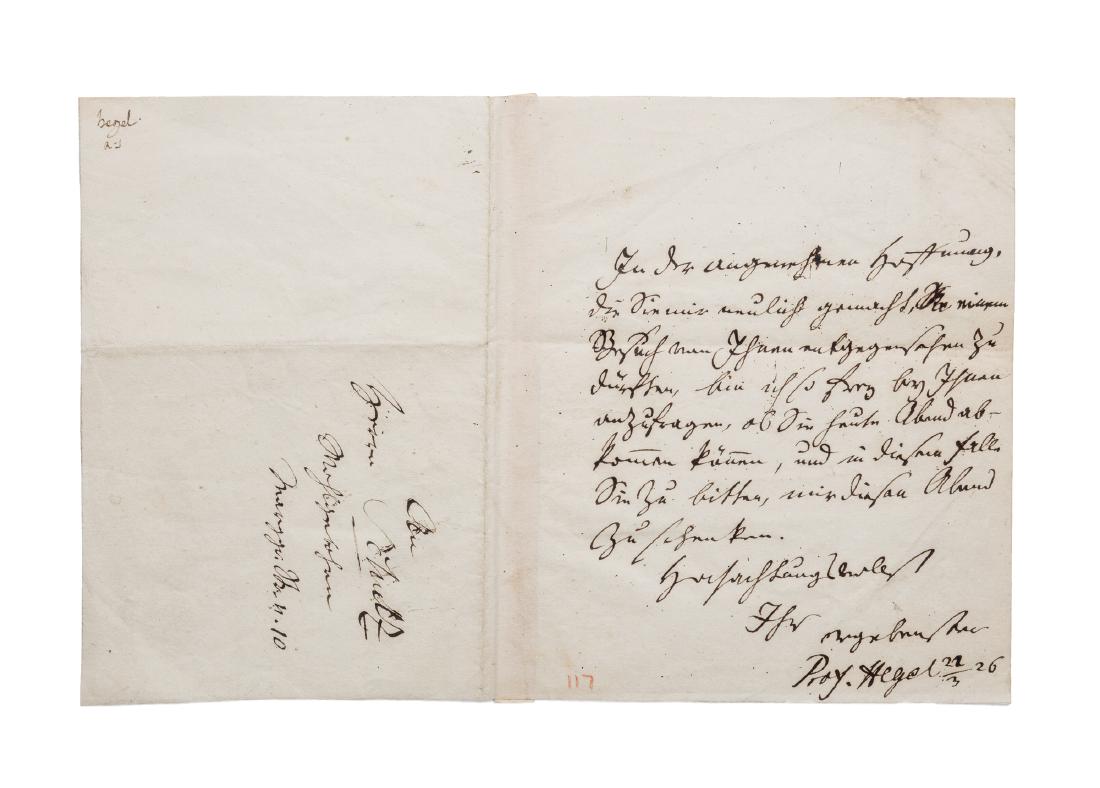 hegel.
In der angenehmen Hoffnung,
die Sie mir neulich gemacht, einem
Besuch von Ihnen entgegensehen zu
dürfen, bin ich so frey bey Ihnen
anzufragen, ob Sie heute Abend ab-
kommen können, und in diesem Falle
Sie zu bitten, mir diesen Abend
zu schenken.
Hochachtungsvollst
Ihr ergebenster
Prof. Hegel 21/3 26
117
An
Herrn Schultz
10